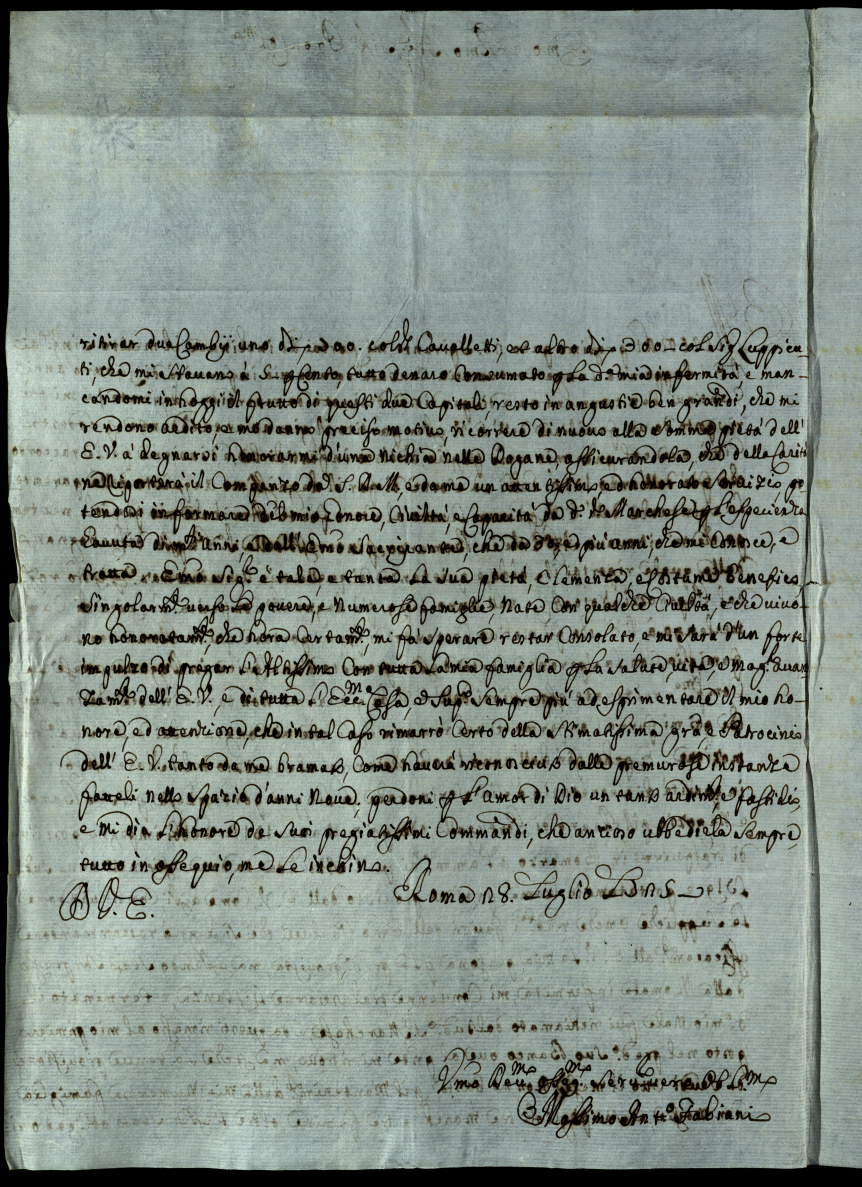 ritirar due Cambij uno di 300. col Cavalletti, et altro di 300 col Sig. Luppica-
ti, che mi stavano à 5 p Cento, tutto denaro consumato p la d.ª mia infermità, e man-
candomi in hoggi il frutto di questi due Capitali resto in angustie ben grandi, che mi
rendono ardito, e mi danno preciso motivo, ricorrere di nuovo alla somma pietà dell'
E. V. à degnarsi honorarmi d'una Nichia nella Dogana, assicurandola, che della Carità
ne riporterà il Compenzo da S. D. M., e da me un attentissimo ed honorato servizio, po-
tendosi informare del mio honore, Civiltà, e Capacità da d. Sr. Marchese p l'esperienza
havuta di m.ti anni, e dall' che da 30, e più anni, che me conosce, e
tratta. Emo Sig.re è tale, e tanta la sua pietà, Clemenza, e benefica
singolarm.te verso le povere, e Numerose famiglie, Nate con qualche Civiltà, e che vivo-
no honoratam.te, che hora certam.te, mi fà sperare restar Consolato, e mi sarà d'un forte
impulzo di pregar l'Altissimo con tutta la mia famiglia p la salute, vita, e mag.r avan-
zam.to dell' E. V., e di tutta l'Ecc.ma Casa, e sempre più ad esprimentare il mio ho-
nore, ed attenzione, che in tal Caso rimarrò Certo della stimatissima gra, e Patrocinio
dell' E. V. tanto da me bramato, Come haverà riconosciuto dalle premurose instanze
fatteli nello spazio d'anni Nove, perdoni p l'amor di Dio un tanto ardim.to, e fastidio
e mi dia l'honore de suoi pregiatissimi Commandi, che ancioso ubbedirla sempre,
tutto in ossequio, me le inchino.
D. V. E. Roma 28. Luglio
Umo Devmo Servitore Oblmo
Massimo Ant.o Fabiani